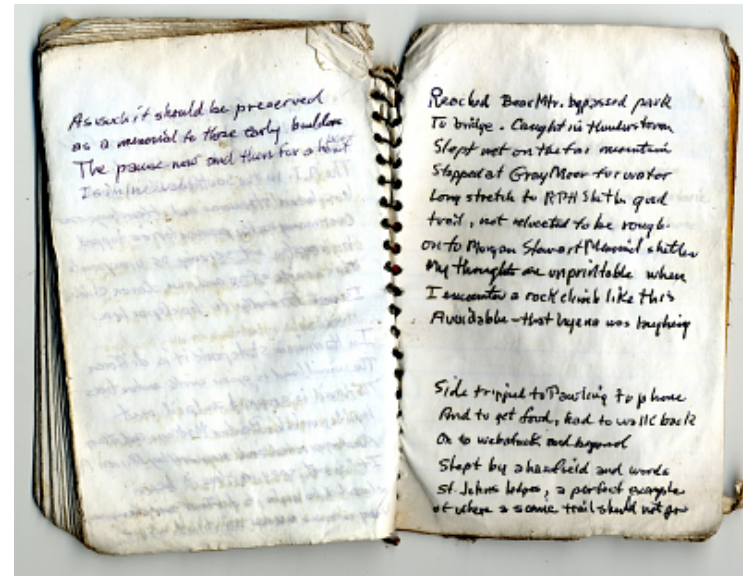 As such it should be preserved
as a memorial to those early builders
The pause now and then for a
Reached Bear Mtr. bypassed park
To bridge. Caught in thunderstorm
Slept wet on the far mountain
Stopped at Gray Moor for water
Long stretch to RPH Shelter good
trail, not relocated to be rough
on to Morgan Stewart Memorial shelter
My thoughts are unprintable when
I encounter a rock climb like this
Avoidable - that hyena was laughing
Side tripped to Pawling to phone
And to get food, had to walk back
On to webatuck and beyond
Slept by a hayfield and woods
St. Johns ledges, a perfect example
of where a scenic trail should not go